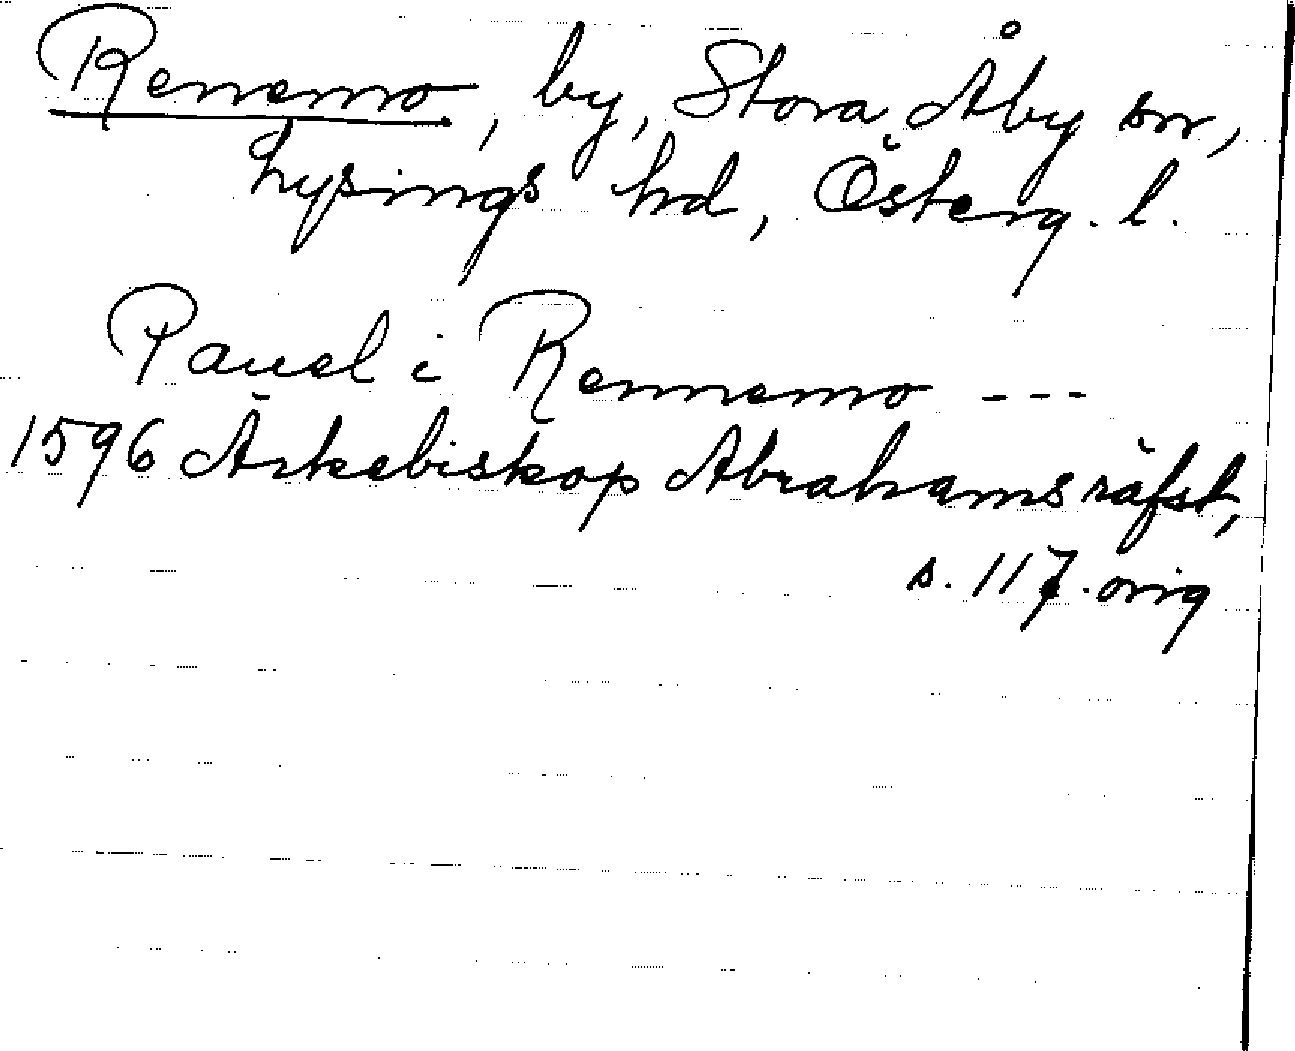 Rennemo, by, Stora Åby sn,
Lysings hd, Österg. l.
Pauel i Rennemo ---
1596 Ärkebiskop Abrahams räfst,
s. 117. orig